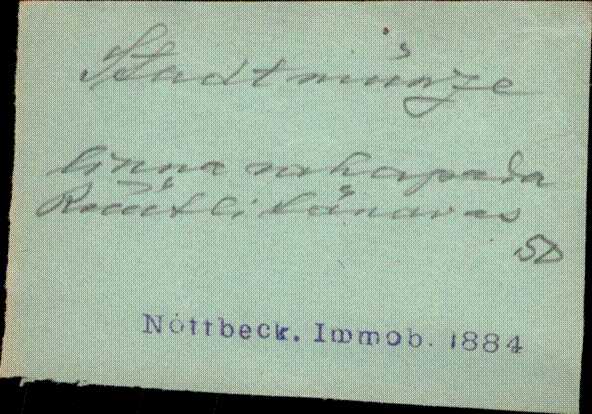 Stadtmünze
linna rahapada
Rüütli tänavas
SD
Nottbeck. Immob. 1884